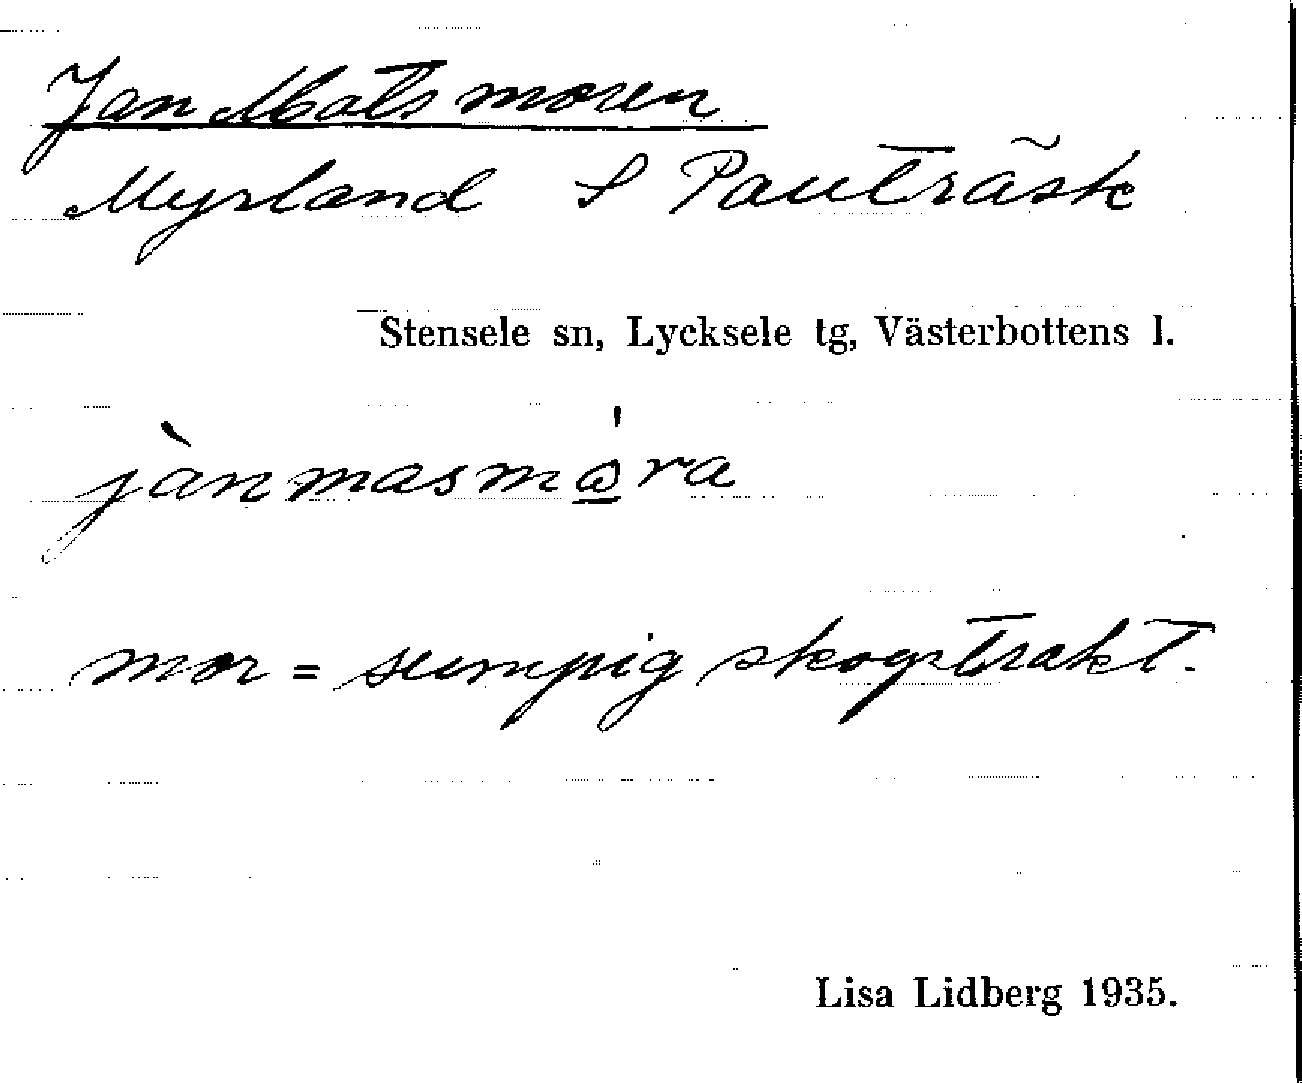 Jan Mats moren
Myrland S Pauträsk
Stensele sn, Lycksele tg, Västerbottens l.
jànmasmώ̲ra
mor = sumpig skogstrakt.
Lisa Lidberg 1935.